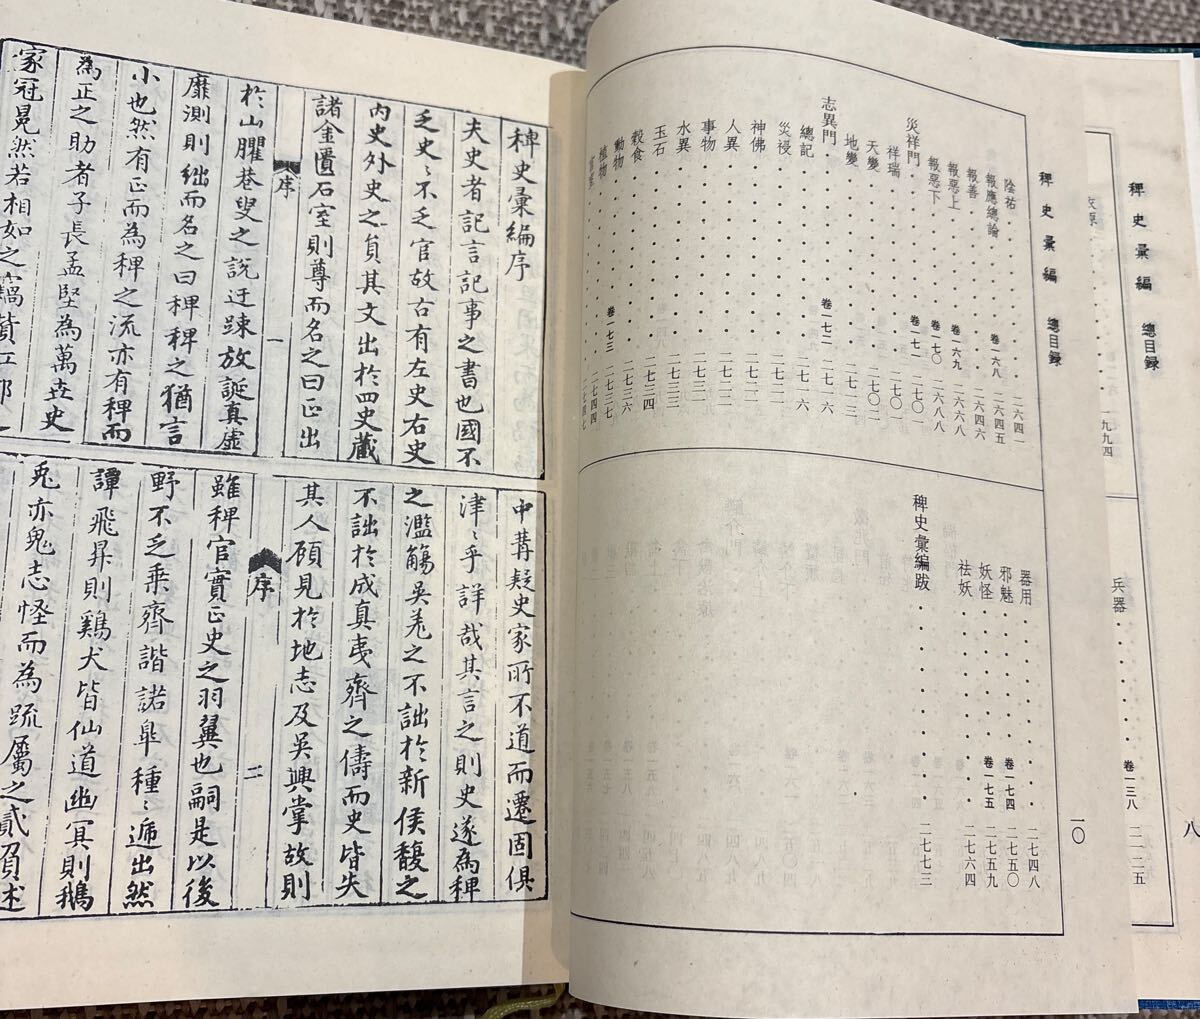 稗史彙編 總目錄
一九九四
兵器 卷一三八 二一二五
八
稗史彙編 總目錄
陰祐 二六四一
報應總論 卷一六八 二六四五
報善 二六四六
報惡上 卷一六九 二六六八
報惡下 卷一七〇 二六八八
災祥門 卷一七一 二七〇一
祥瑞 二七〇一
天變 二七〇二
地變 二七一三
志異門 卷一七二 二七一六
總記 二七一六
災祲
神佛
人異
事物
水異 二七三三
玉石 二七三四
穀食 二七三六
動物 卷一七三 二七三七
植物 二七四四
器用 二七四八
邪魅 卷一七四 二七五〇
妖怪 卷一七五 二七五九
祛妖 二七六四
稗史彙編跋 二七七三
一〇
稗史彙編序
夫史者記言記事之書也國不
乏史〻不乏官故古有左史右史
內史外史之員其文出於四史藏
諸金匱石室則尊而名之曰正出
序 一
於山臞巷叟之說迂踈放誕真虛
靡測則絀而名之曰稗稗之猶言
小也然有正而為稗之流亦有稗而
為正之助者子長孟堅為萬世史
家冠冕然若相如之竊貲
中冓疑史家所不道而遷固俱
津〻乎詳哉其言之則史遂為稗
之濫觴吳兎之不詘於新侯馥之
不詘於成真夷齊之儔而史皆失
其人顧見於地志及吳興掌故則
序 二
雖稗官實正史之羽翼也嗣是以後
野不乏乗齊諧諾皐種〻遞出然
譚飛昇則鷄犬皆仙道幽冥則鵝
兎亦鬼志怪而為䟽屬之貳負述